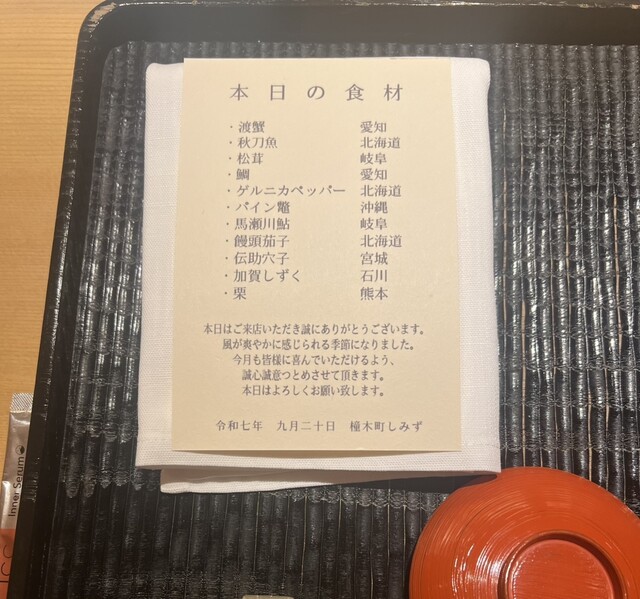 本日の食材
・渡蟹 愛知
・秋刀魚 北海道
・松茸 岐阜
・鯛 愛知
・ゲルニカペッパー 北海道
・パイン鼈 沖縄
・馬瀬川鮎 岐阜
・饅頭茄子 北海道
・伝助穴子 宮城
・加賀しずく 石川
・栗 熊本
本日はご来店いただき誠にありがとうございます。
風が爽やかに感じられる季節になりました。
今月も皆様に喜んでいただけるよう、
誠心誠意つとめさせて頂きます。
本日はよろしくお願い致します。
令和七年 九月二十日 橦木町しみず
Inner Serum